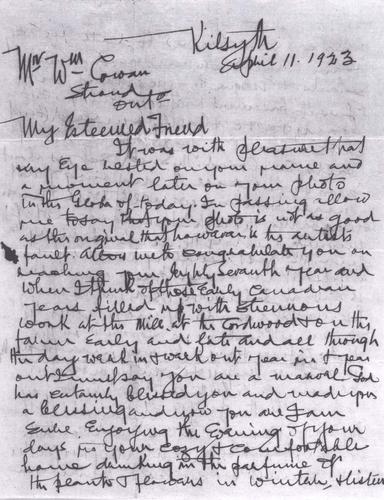 Kilsyth
April 11. 1923
Mr Wm Cowan
Stroud
Ont
My Esteemed Friend
It was with pleasure that
my Eye rested on your name and
a moment later on your photo
in the Globe of today. In passing allow
me to say that your photo is not as good
as the original that however is the artists
fault. Allow me to congratulate you on
reaching your Eighty Seventh year and
when I think of those Early Canadian
years filled up with strenuous
work at the Mill, at the Cordwood & on the
farm Early and late and all through
the day week in & week out year in & year
out I must say you are a marvel God
has certainly blessed you and made you
a blessing and now you are I am
sure Enjoying the Evening of your
days in your cozy & comfortable
home drinking in the perfume of
the plants & flowers in winter, & listen